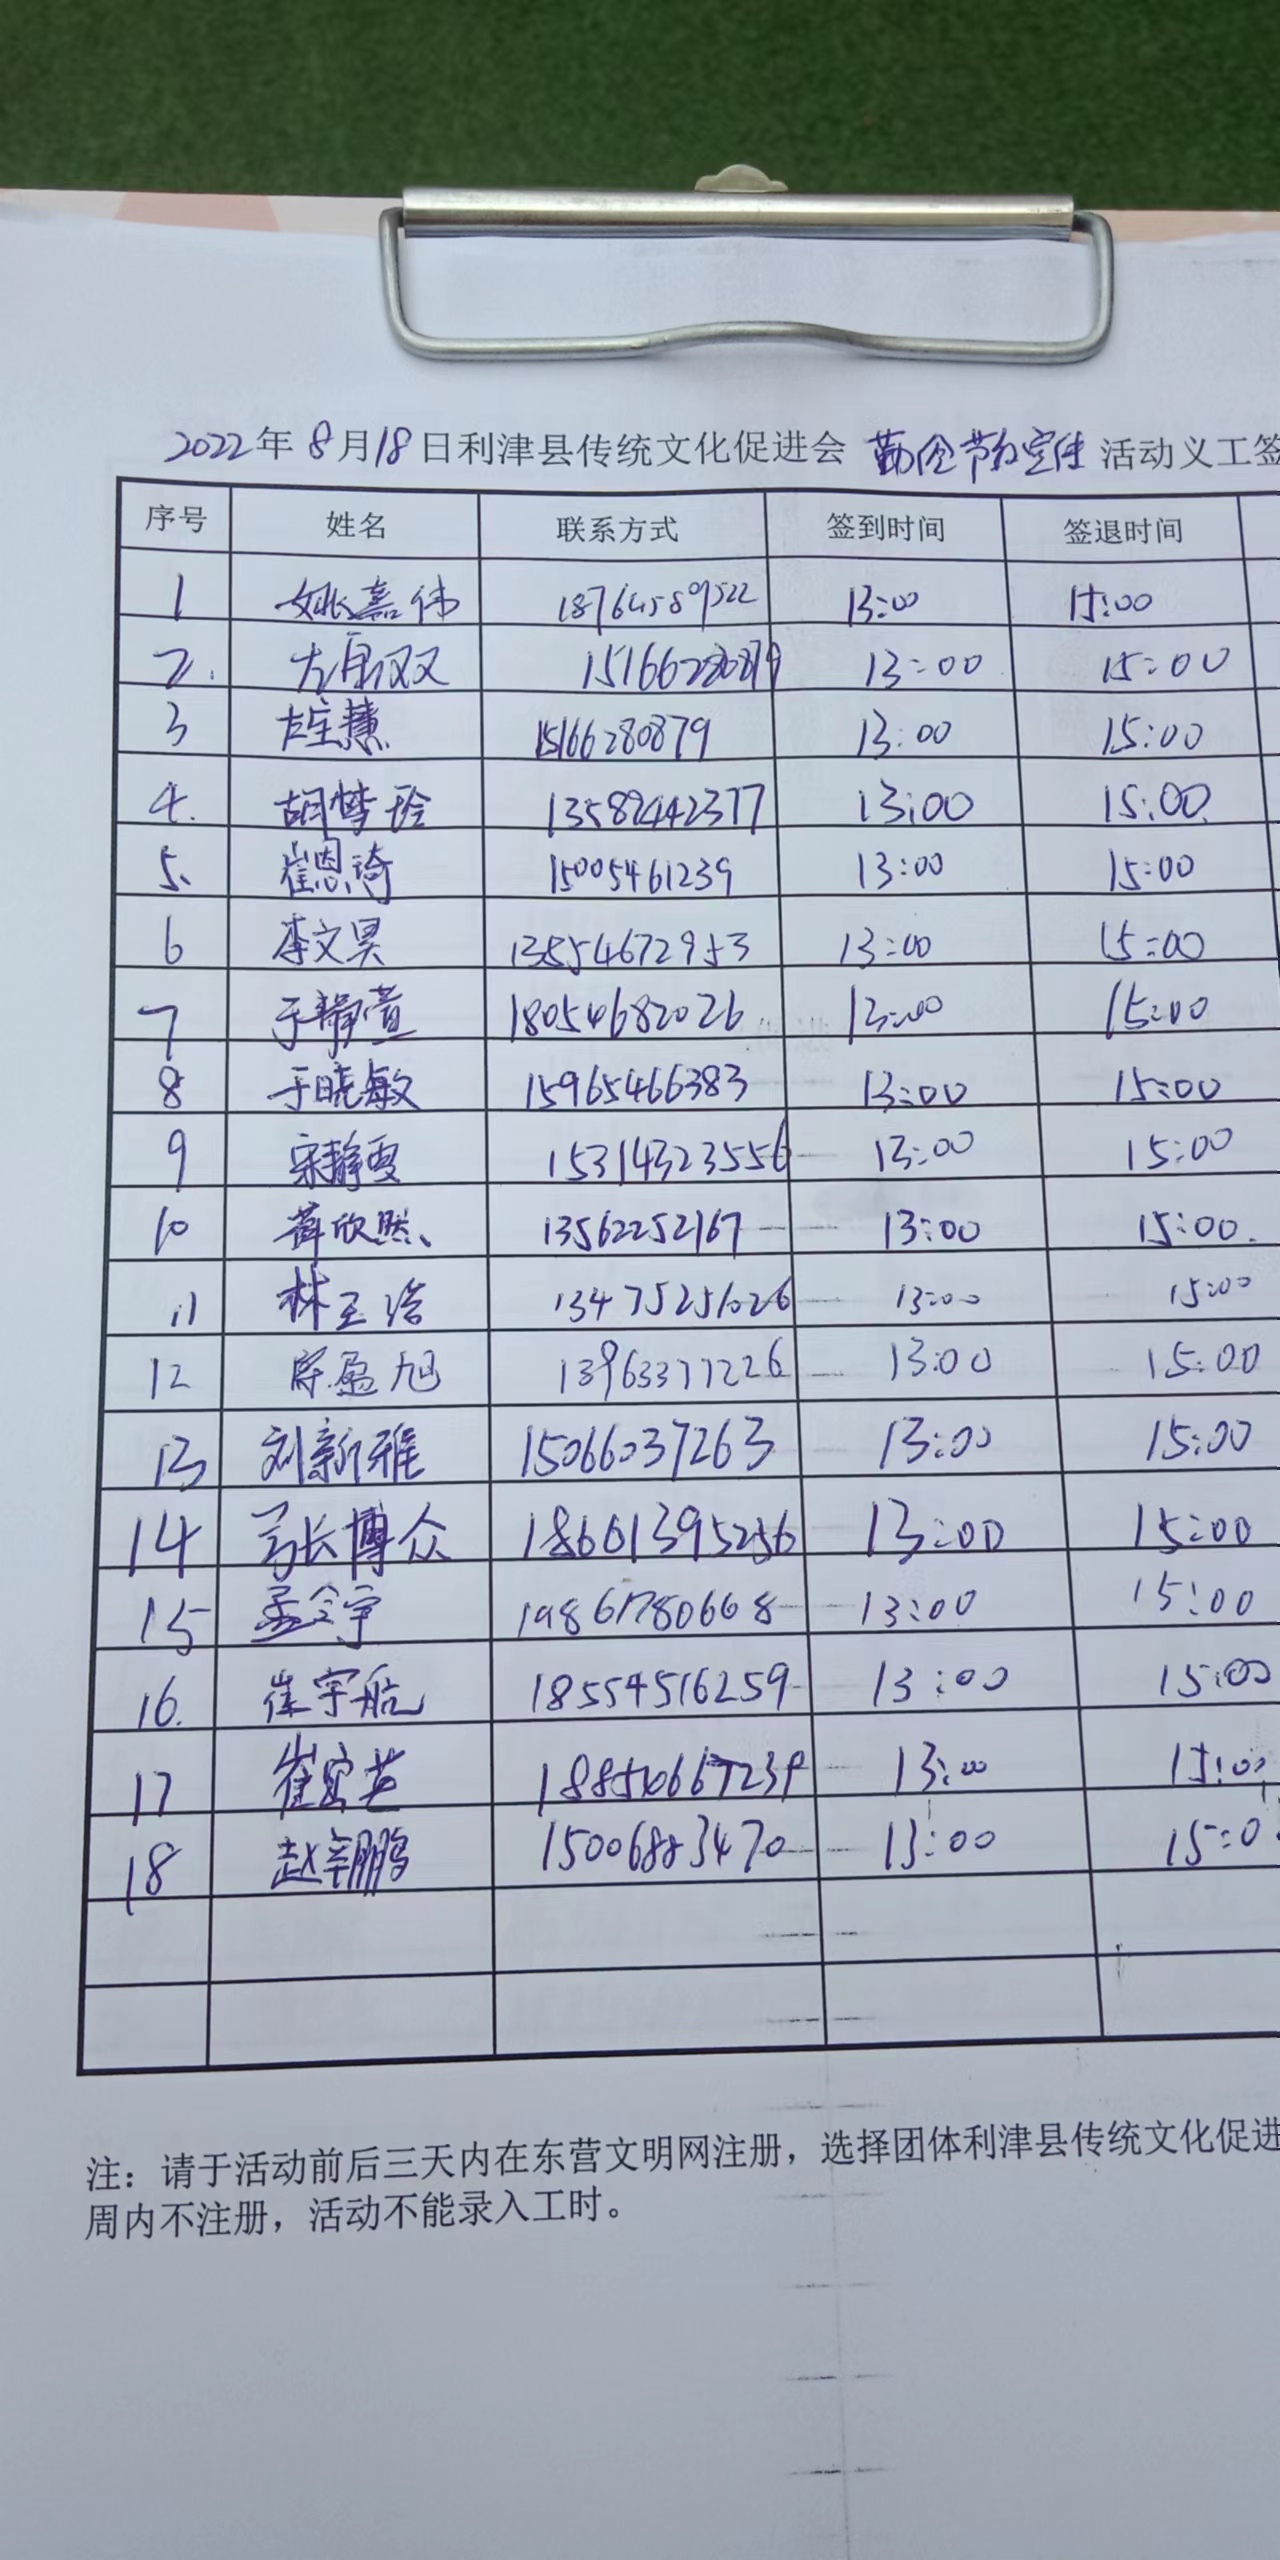 2022年8月18日利津县传统文化促进会 勤俭节约宣传 活动义工签
序号 姓名 联系方式 签到时间 签退时间
1 姚嘉伟 18764589522 13:00 15:00
2. 15166280879 13:00 15:00
3 左宝慧 15166280879 13:00 15:00
4. 胡梦玲 13589442377 13:00 15:00.
5. 崔恩琦 15005461239 13:00 15:00
6 李文昊 13554672953 13:00 15:00
7 于静萱 18054682026 13:00 15:00
8 于晓敏 15965466383 13:00 15:00
9 宋静雯 15314323556 13:00 15:00
10 薛欣然 13562252167 13:00 15:00.
11 林玉浩 13475251026 13:00 15:00
12 盈旭 13963377226 13:00 15:00
13 刘新雅 15066037263 13:00 15:00
14 长博众 18661395256 13:00 15:00
15 孟令宇 19861780668 13:00 15:00
16. 崔宇航 18554516259 13:00 15:00
17 崔宏芸 13:00 15:00
18 赵翱鹏 15006883470 13:00 15:0
注：请于活动前后三天内在东营文明网注册，选择团体利津县传统文化促进
周内不注册，活动不能录入工时。